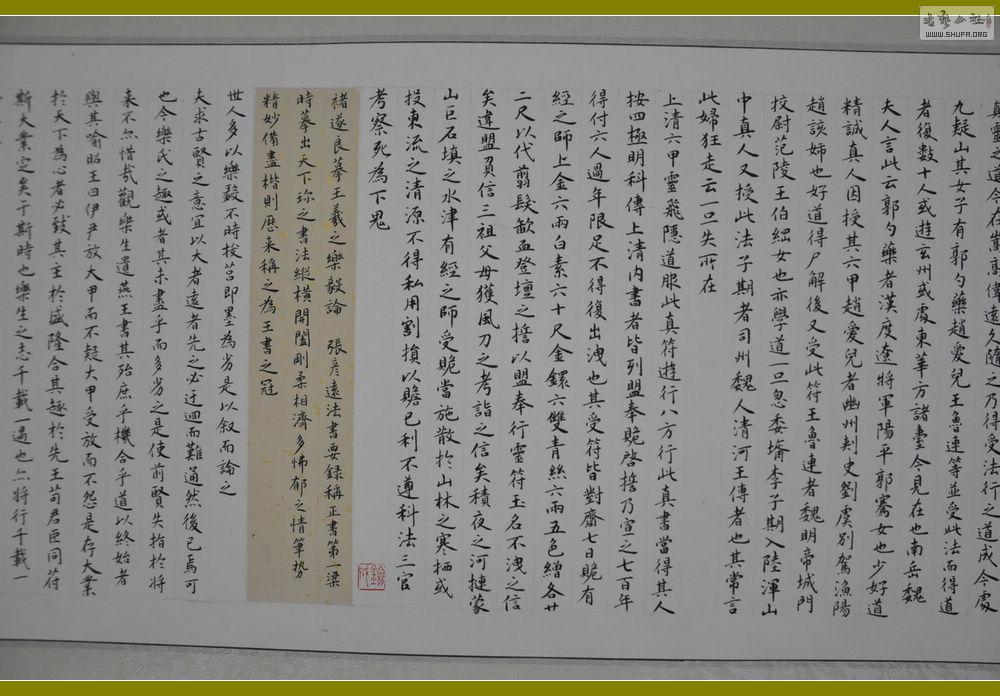 真靈之道今在嵩高偉遠久隨之乃得受法行之道成今處
九疑山其女子有郭勺藥趙愛兒王魯連等並受此法而得道
者復數十人或遊玄州或處東華方諸臺今見在也南岳魏
夫人言此云郭勺藥者漢度遼將軍陽平郭騫女也少好道
精誠真人因授其六甲趙愛兒者幽州刾史劉虞別駕漁陽
趙該姊也好道得尸解後又受此符王魯連者魏明帝城門
校尉范陵王伯綱女也亦學道一旦忽委壻李子期入陸渾山
中真人又授此法子期者司州魏人清河王傳者也其常言
此婦狂走云一旦失所在
上清六甲靈飛隱道服此真符遊行八方行此真書當得其人
按四極明科傳上清內書者皆列盟奉贈啓誓乃宣之七百年
得付六人過年限足不得復出洩也其受符皆對齋七日贈有
經之師上金六兩白素六十尺金鐶六雙青絲六兩五色繒各廿
二尺以代翦髮歃血登壇之誓以盟奉行靈符玉名不洩之信
矣違盟負信三祖父母獲風刀之考詣之信矣積夜之河摙蒙
山巨石填之水津有經之師受贈當施散於山林之寒栖或
投東流之清源不得私用割損以贍已利不遵科法三官
考察死為下鬼
褚遂良摹王羲之樂毅論 張彥遠法書要録稱正書第一梁
時摹出天下珍之書法縱橫開闔剛柔相濟多怫郁之情筆勢
精妙備盡楷則歷来稱之為王書之冠
世人多以樂毅不時拔莒即墨為劣是以叙而論之
夫求古賢之意宜以大者遠者先之必迂迴而難通然後已焉可
也今樂氏之趣或者其未盡乎而多劣之是使前賢失指於將
来不亦惜哉觀樂生遺燕王書其殆庶乎機合乎道以終始者
與其喻昭王曰伊尹放大甲而不疑大甲受放而不怨是存大業
於天下為心者必致其主於盛隆合其趣於先王苟君臣同苻
斯大業定矣于斯時也樂生之志千載一遇也亦將行千載一
書藝公社
WWW.SHUFA.ORG